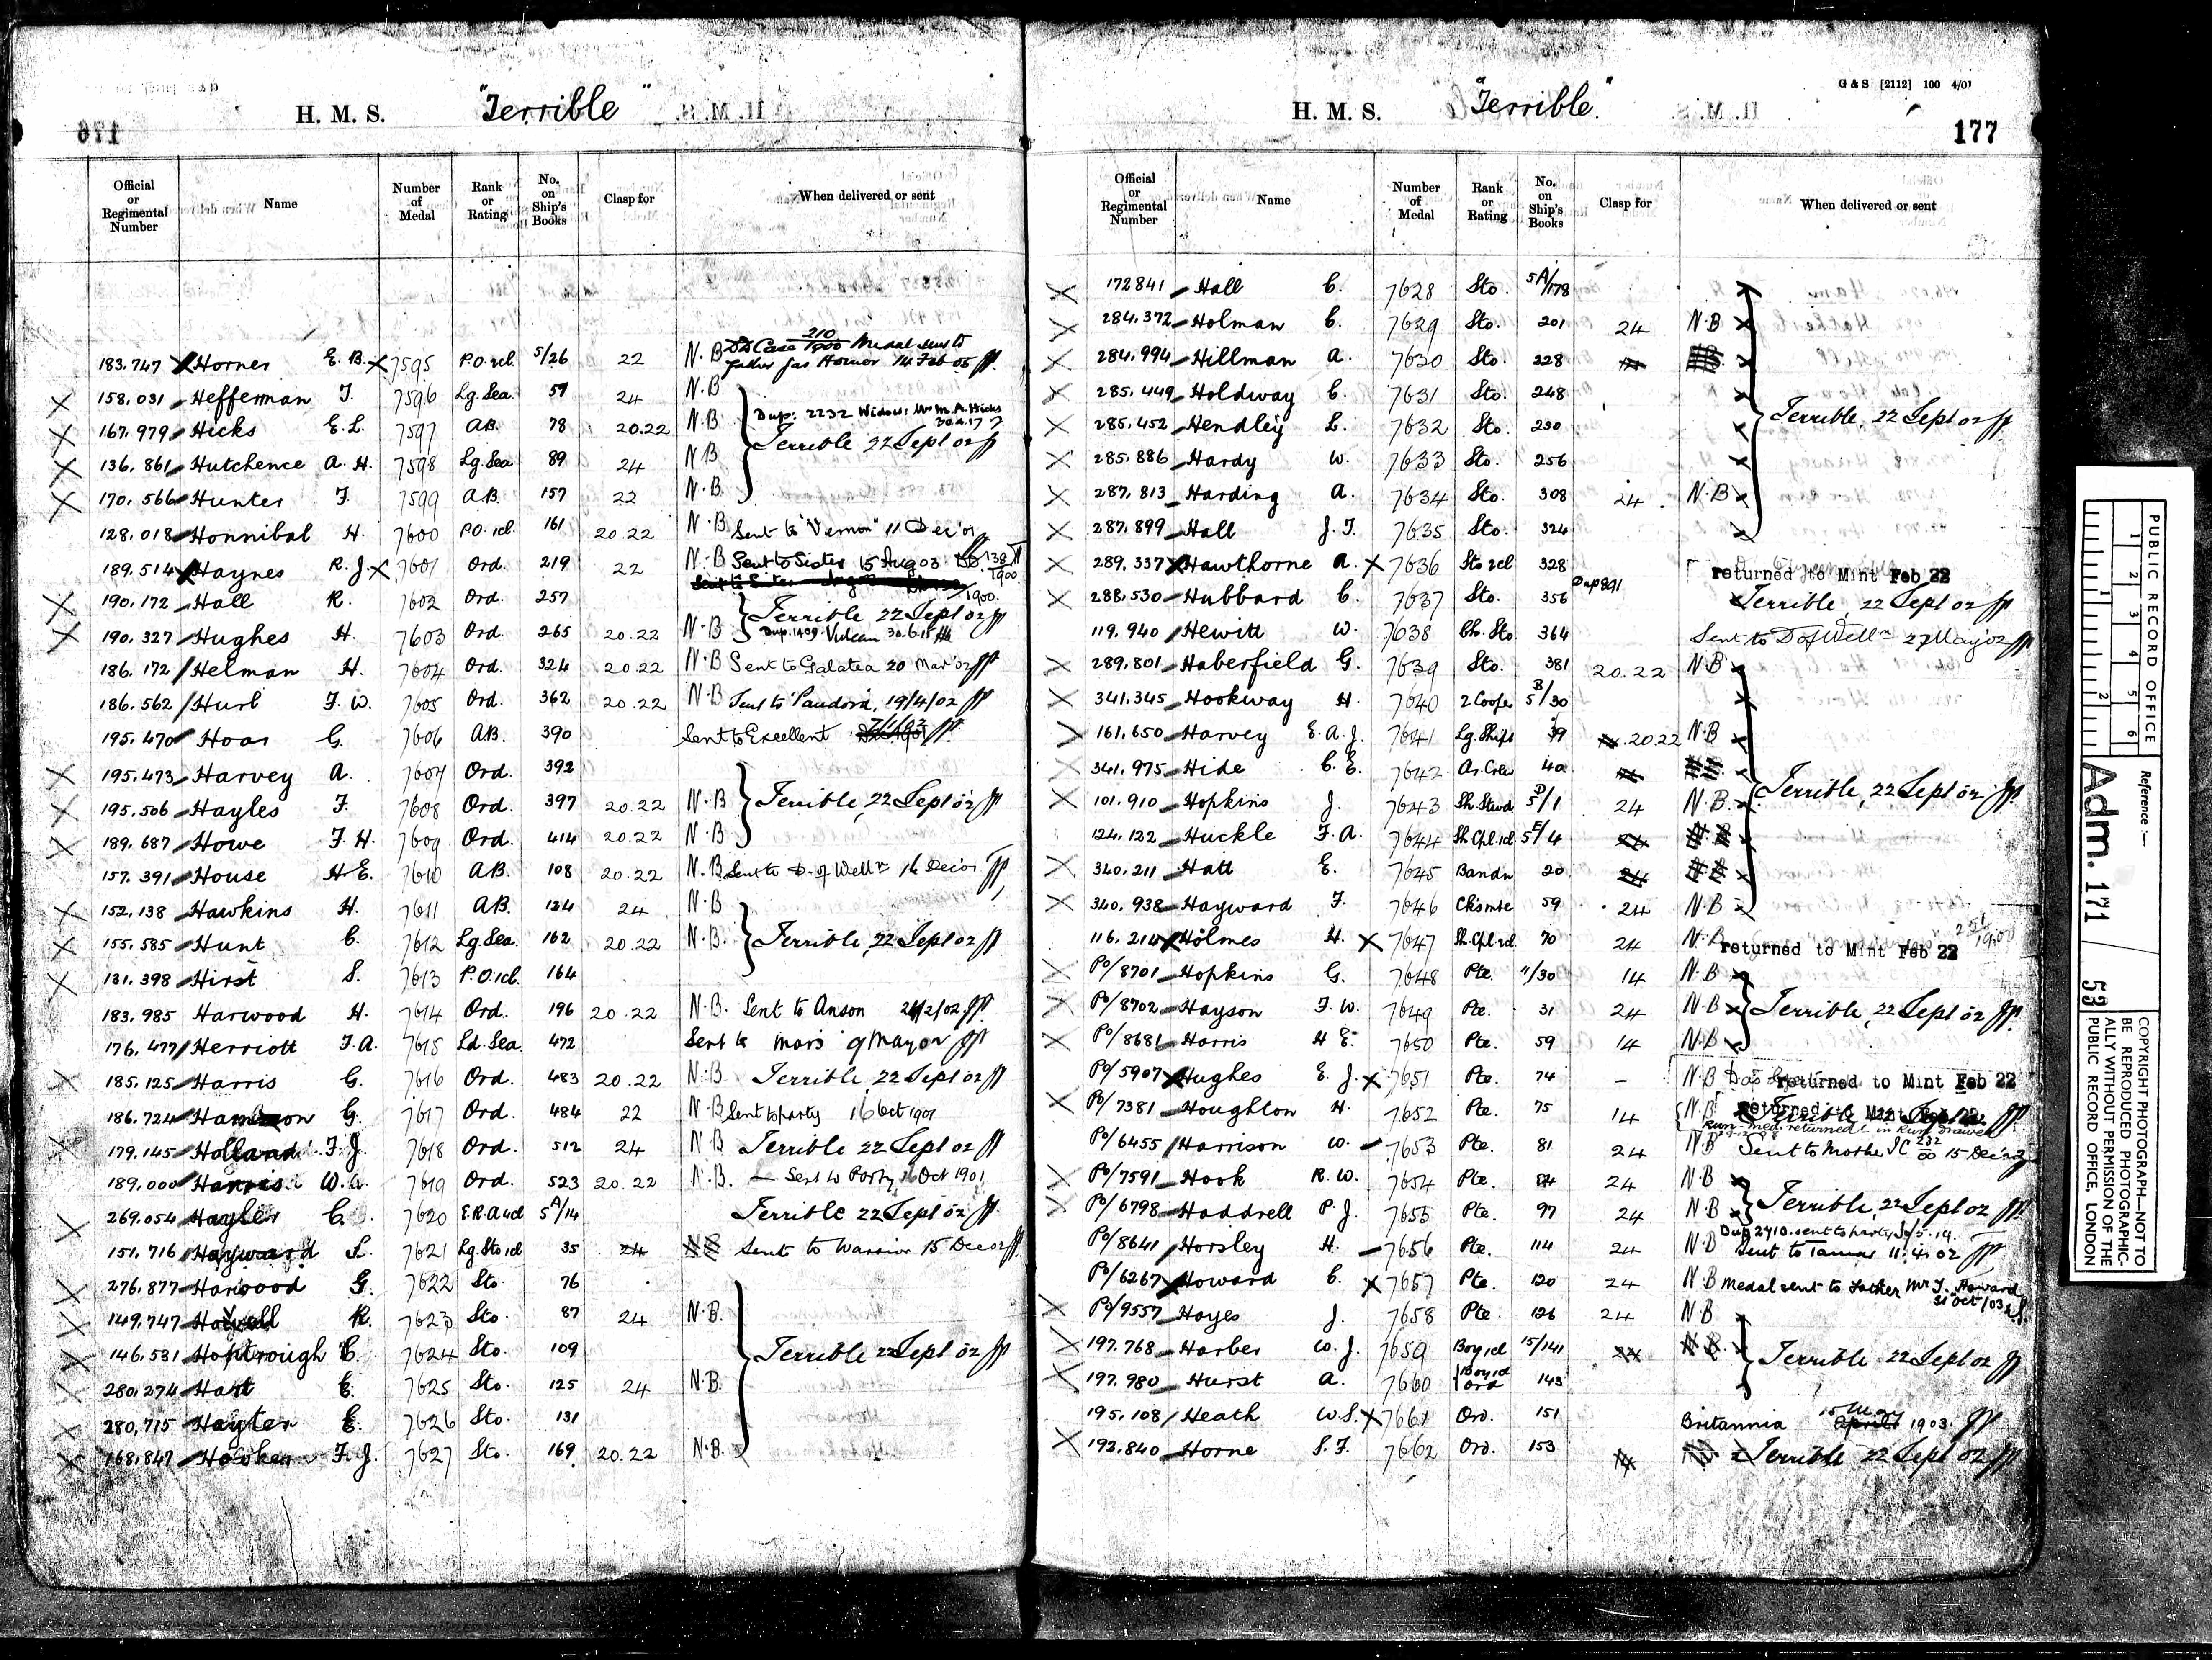 H. M. S. "Terrible"
176
Official or Regimental Number Name Number of Medal Rank or Rating No. on Ship's Books Clasp for When delivered or sent
183.747 Horner E. B. 7595 P.O. 1cl. 5/26 22 N.B DD Case 210/1900 Medal sent to father Jas Horner 14 Feb 05
158.031 Hefferman J. 7596 Lg. Sea. 57 24 N.B
167.979 Hicks E. L. 7597 AB. 78 20.22 N.B Dup: 2232 Widow: Mrs M. A. Hicks 30.4.17
136.861 Hutchence A. H. 7598 Lg. Sea 89 24 N.B Terrible 22 Sept 02
170.566 Hunter J. 7599 A.B. 157 22 N.B.
128.018 Honnibal H. 7600 P.O. 1cl. 161 20.22 N.B Sent to "Vernon" 11 Dec '01
189.514 Haynes R. J. 7601 Ord. 219 22 N.B Sent to Sister 15 Aug 03 DD 138/1900
190.172 Hall R. 7602 Ord. 257 Terrible 22 Sept 02
190.327 Hughes H. 7603 Ord. 265 20.22 N.B Dup. 1409. Vulcan 30.6.15
186.172 Helman H. 7604 Ord. 324 20.22 N.B Sent to Galatea 20 Mar '02
186.562 Hurl F. W. 7605 Ord. 362 20.22 N.B Sent to Pandora, 19/4/02
195.470 Hoar G. 7606 AB. 390 Sent to Excellent
195.473 Harvey A. 7607 Ord. 392
195.506 Hayles F. 7608 Ord. 397 20.22 N.B Terrible, 22 Sept 02
189.687 Howe F. H. 7609 Ord. 414 20.22 N.B
157.391 House H E. 7610 AB. 108 20.22 N.B. Sent to D. of Welln 16 Dec 01
152.138 Hawkins H. 7611 AB. 124 24 N.B
155.585 Hunt C. 7612 Lg. Sea. 162 20.22 N.B. Terrible, 22 Sept 02
131.398 Hirst S. 7613 P.O. 1cl. 164
183.985 Harwood H. 7614 Ord. 196 20.22 N.B. Sent to Anson 24/2/02
176.477 Herriott J. A. 7615 Ld. Sea. 472 Sent to Mars 9 May 02
185.125 Harris G. 7616 Ord. 483 20.22 N.B Terrible 22 Sept 02
186.724 G. 7617 Ord. 484 22 N.B Sent to party 16 Oct 1901
179.145 Holland F. J. 7618 Ord. 512 24 N.B Terrible 22 Sept 02
189.000 Harris W. 7619 Ord. 523 20.22 N.B. Sent to Party 16 Oct 1901
269.054 Hayler C. 7620 E.R.A 4cl 5A/14 Terrible 22 Sept 02
151.716 Hayward S. 7621 Lg. Sto 1cl 35 24 NB Sent to Warrior 15 Dec 02
276.877 Harwood G. 7622 Sto. 76
149.747 R. 7623 Sto. 87 24 N.B.
146.531 C. 7624 Sto. 109 Terrible 22 Sept 02
280.274 Hart E. 7625 Sto. 125 24 N.B.
280.715 Hayter E. 7626 Sto. 131
168.847 Hosken F. J. 7627 Sto. 169 20.22 N.B.
G & S [2112] 100 4/01
H. M. S. "Terrible"
177
Official or Regimental Number Name Number of Medal Rank or Rating No. on Ship's Books Clasp for When delivered or sent
172841 Hall C. 7628 Sto. 5A/178
284.372 Holman C. 7629 Sto. 201 24 N.B
284.994 Hillman A. 7630 Sto. 228
285.449 Holdway C. 7631 Sto. 248
285.452 Hendley L. 7632 Sto. 250 Terrible, 22 Sept 02
285.886 Hardy W. 7633 Sto. 256
287.813 Harding A. 7634 Sto. 308 24 N.B
287.899 Hall J. J. 7635 Sto. 324
289.337 Hawthorne A. 7636 Sto 2cl 328 returned to Mint Feb 22
288.530 Hubbard C. 7637 Sto. 356 Dup 891 Terrible, 22 Sept 02
119.940 Hewitt W. 7638 Ch. Sto. 364 Sent to D of Welln 27 May 02
289.801 Haberfield G. 7639 Sto. 381 20.22 N.B
341.345 Hookway H. 7640 2 Cooper 5B/30
161.650 Harvey E. A. J. 7641 Lg. Ships 39 20.22 N.B
341.975 Hide C. E. 7642 Ar. Crew 40
101.910 Hopkins J. 7643 Sh. Stewd 5D/1 24 N.B. Terrible, 22 Sept 02
124.122 Huckle F. A. 7644 Sh. Cpl. 1cl 5E/4 24 N.B
340.211 Hatt E. 7645 Bandn 20 24 N.B
340.938 Hayward F. 7646 Ck's mte 59 24 N.B
116.214 Holmes H. 7647 Sh. Cpl. 1cl 70 24 N.B returned to Mint Feb 22
Po/8701 Hopkins G. 7648 Pte. 11/30 14 N.B
Po/8702 Hayson F. W. 7649 Pte. 31 24 N.B Terrible, 22 Sept 02
Po/8681 Harris H E. 7650 Pte. 59 14 N.B
Po/5907 Hughes E. J. 7651 Pte. 74 – N.B returned to Mint Feb 22
Po/7381 Houghton H. 7652 Pte. 75 14 N.B returned to Mint
Run. Med. returned & in Run drawer
Po/6455 Harrison W. 7653 Pte. 81 24 N.B Sent to Mother 15 Dec
Po/7591 Hook R. W. 7654 Pte. 84 24 N.B
Po/6798 Haddrell P. J. 7655 Pte. 97 24 N.B Terrible, 22 Sept 02
Po/8641 Horsley H. 7656 Pte. 114 24 N.B Dup 2710. sent to party Sent to Tamar 11.4.02
Po/6267 Howard C. 7657 Pte. 120 24 N.B Medal sent to father Mr J. Howard 31 Oct/03
Po/9557 Hayes J. 7658 Pte. 126 24 N.B
197.768 Harber W. J. 7659 Boy 1cl 15/141 24 N.B. Terrible 22 Sept 02
197.980 Hurst A. 7660 Boy 1cl Ord 143
195.108 Heath W. S. 7661 Ord. 151 Britannia 15 May 1903.
192.840 Horne S. F. 7662 Ord. 153 Terrible 22 Sept 02
PUBLIC RECORD OFFICE
1 2 3 4 5 6
1 2
Reference:—
Adm. 171 / 53
COPYRIGHT PHOTOGRAPH—NOT TO BE REPRODUCED PHOTOGRAPHICALLY WITHOUT PERMISSION OF THE PUBLIC RECORD OFFICE, LONDON